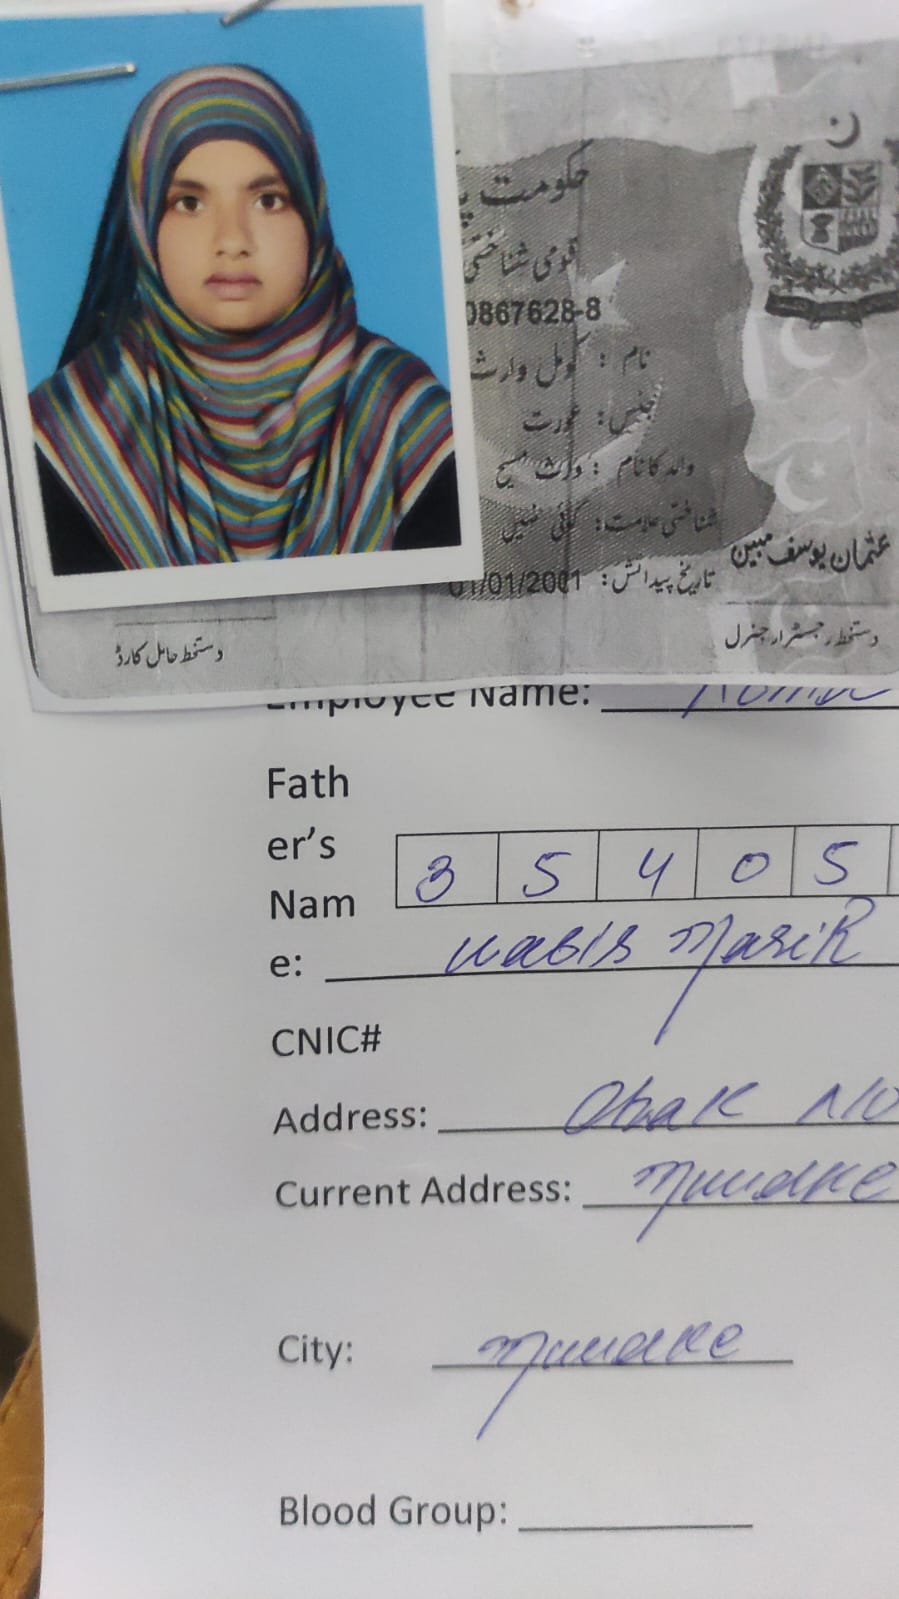 حکومت
قومی شناختی
0867628-8
نام : کومل وارث
جنس: عورت
والد کا نام : وارث مسیح
شناختی علامت: کوئی نہیں
تاریخ پیدائش: 01/01/2001
عثمان یوسف مبین
دستخط حامل کارڈ
دستخط رجسٹرار جنرل
Employee Name:
Fath
er's
Nam
e:
3 5 4 0 5
Masih
CNIC#
Address:
Current Address:
City:
Blood Group: